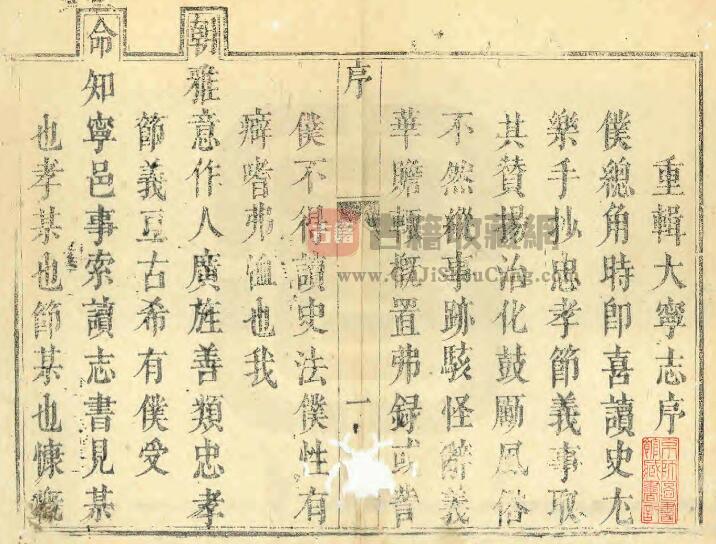 重輯大寧志序
僕總角時即喜讀史尤
樂手抄忠孝節義事取
其贊揚治化鼓勵風俗
不然縱事跡駭怪辭義
華贍頓概置弗録或訾
序
一
僕不得讀史法僕性有
癖嗜弗恤也我
朝雅意作人廣旌善類忠孝
節義亘古希有僕受
命知寧邑事索讀志書見某
也孝某也節某也慷慨
古籍
古籍收藏網
www.GuJiShouCang.com
京師圖書
館藏書章